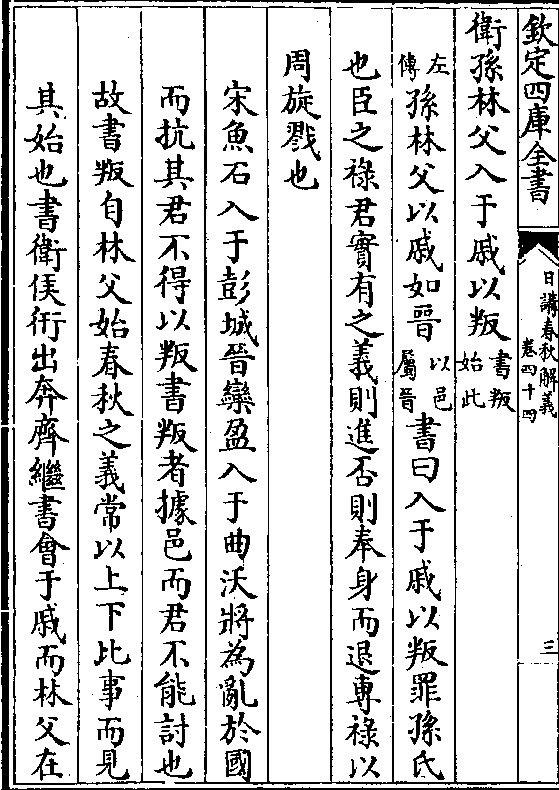 欽定四庫全書
日講春秋解義
卷四十四
三
衛孫林父入于戚以叛書叛始此
左傳孫林父以戚如晉以邑屬晉書曰入于戚以叛罪孫氏
也臣之祿君實有之義則進否則奉身而退專祿以
周旋戮也
宋魚石入于彭城晉欒盈入于曲沃將為亂於國
而抗其君不得以叛書叛者據邑而君不能討也
故書叛自林父始春秋之義常以上下比事而見
其始也書衛侯衎出奔齊繼書會于戚而林父在